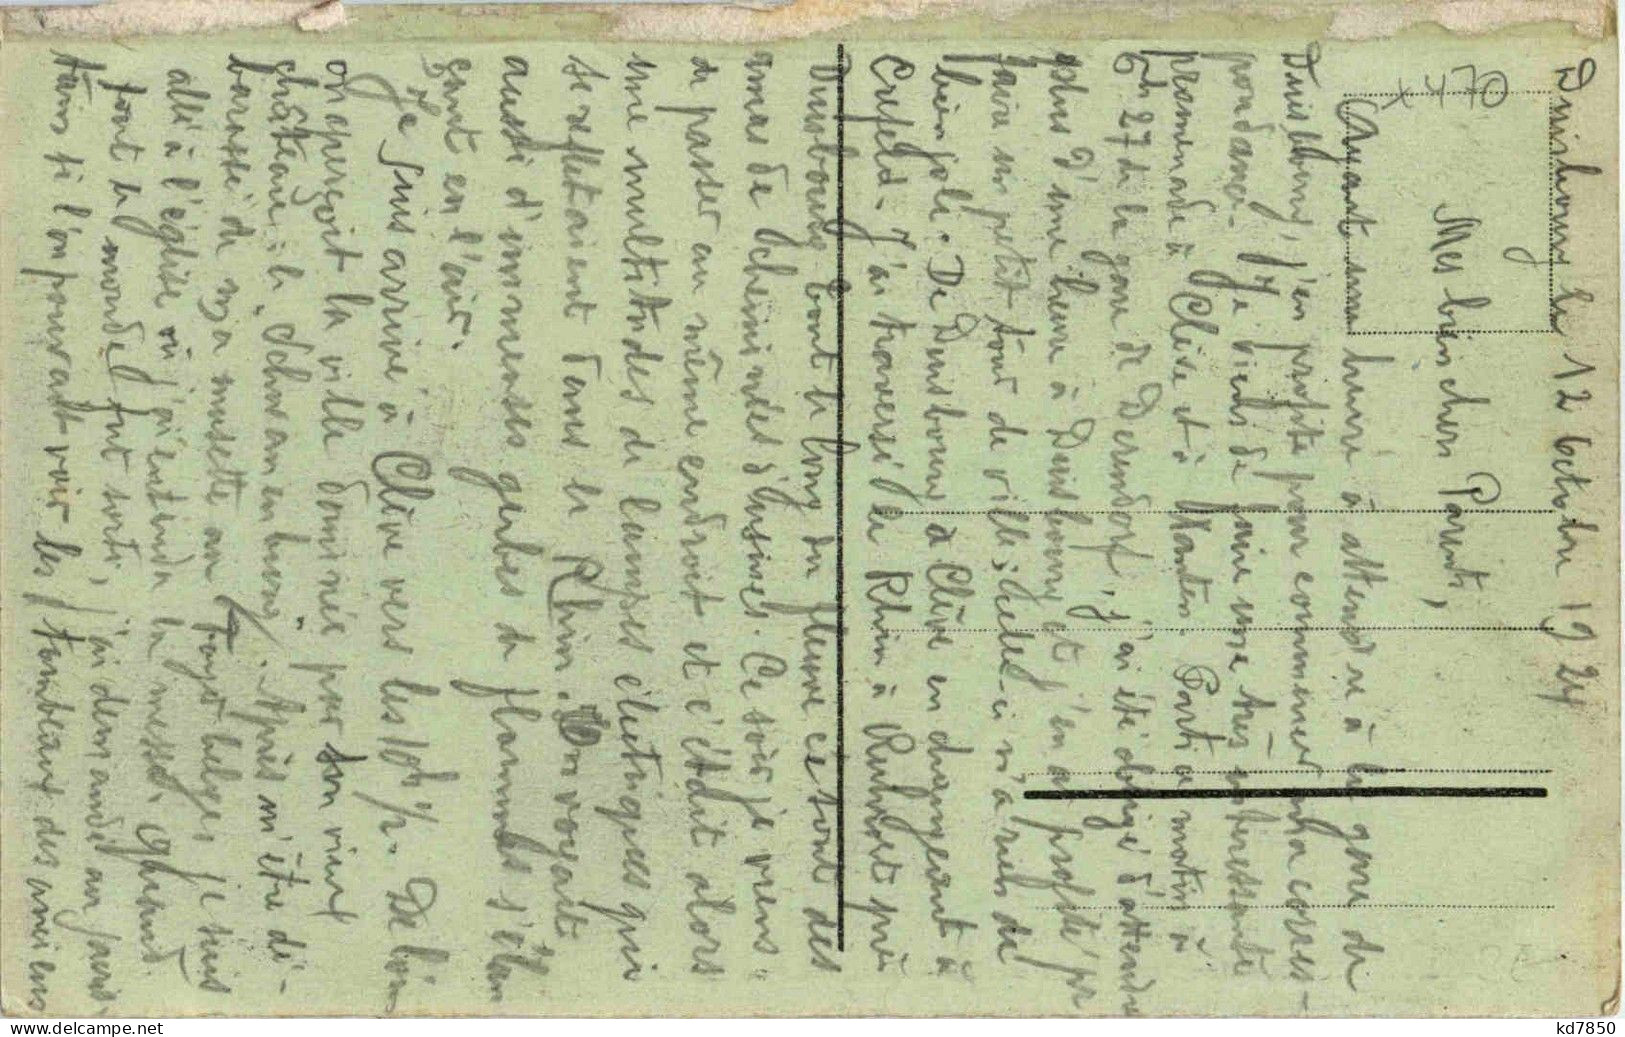 Duisbourg le 12 octobre 1924
Mes bien chers Parents,
Ayant une heure à attendre à la gare de
Duisbourg, j'en profite pour commencer ma corres-
pondance. Je viens de faire une très intéressante
promenade à Clève et à Xanten. Parti ce matin à
6h 27 de la gare de Derendorf, j'ai été obligé d'attendre
plus d'une heure à Duisbourg et j'en ai profité pr
faire un petit tour de ville; celle-ci n'a rien de
bien joli. De Duisbourg à Clève en changeant à
Crefeld. J'ai traversé le Rhin à Ruhrort près
Duisbourg dont le long du fleuve ce sont des
amas de cheminées d'usines. Ce soir je viens
de passer au même endroit et c'était alors
une multitudes de lampes électriques qui
se reflétaient dans le Rhin. On voyait
aussi d'immenses gerbes de flammes s'élan
çant en l'air.
Je suis arrivé à Clève vers les 10h ½. De loin
on aperçoit la ville dominée par son vieux
château : le "Schwanenburg". Après m'être dé-
barassé de ma musette au foyer belge, je suis
allé à l'église où j'ai entendu la messe. Quand
tout le monde fut sorti, j'ai demandé au sacris-
tain si l'on pouvait voir les tombeaux des anciens
x470
kd7850